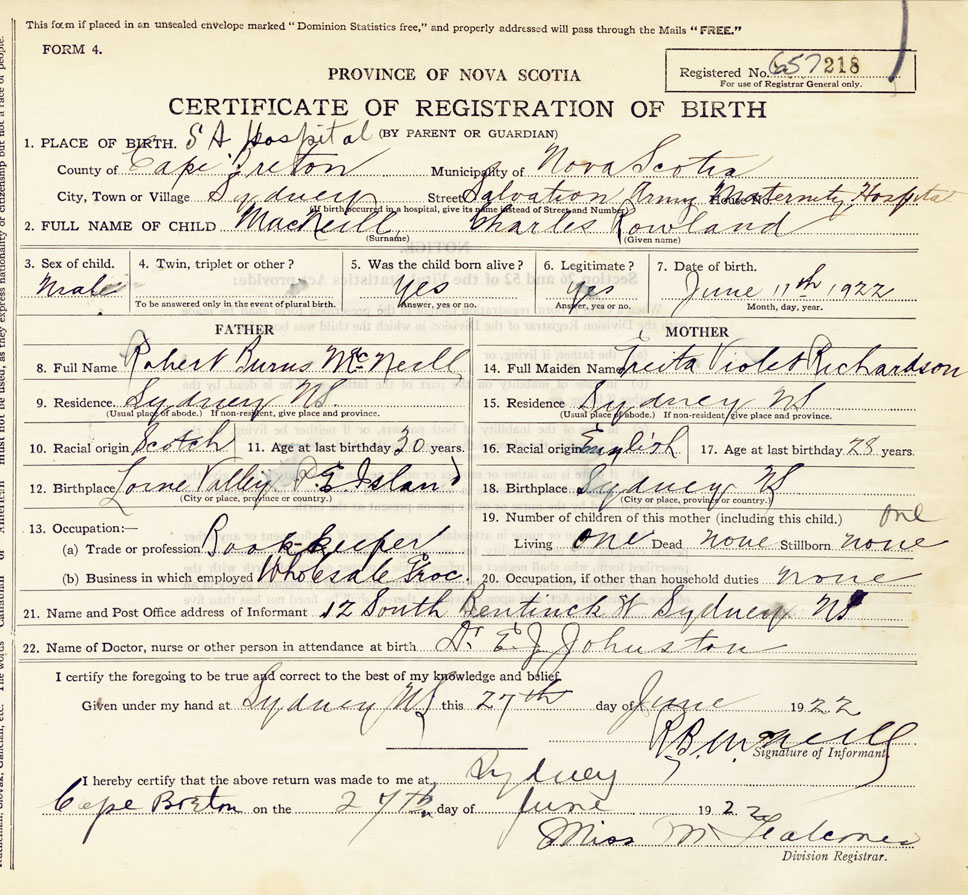 This form if placed in an unsealed envelope marked "Dominion Statistics free," and properly addressed will pass through the Mails "FREE."
FORM 4.
PROVINCE OF NOVA SCOTIA
Registered No. 657 218
For use of Registrar General only.
CERTIFICATE OF REGISTRATION OF BIRTH
(BY PARENT OR GUARDIAN)
1. PLACE OF BIRTH. S A Hospital
County of Cape Breton Municipality of Nova Scotia
City, Town or Village Sydney Street Salvation Army Maternity Hospital House No.
(If birth occurred in a hospital, give its name instead of Street and Number)
2. FULL NAME OF CHILD MacNeill, Charles Rowland
(Surname) (Given name)
3. Sex of child. 4. Twin, triplet or other? 5. Was the child born alive? 6. Legitimate? 7. Date of birth.
Male yes yes June 11th 1922
To be answered only in the event of plural birth. Answer, yes or no. Answer, yes or no. Month, day, year.
FATHER MOTHER
8. Full Name Robert Burns McNeill 14. Full Maiden Name Violet Richardson
9. Residence. Sydney NS. 15. Residence Sydney NS
(Usual place of abode.) If non-resident, give place and province. (Usual place of abode.) If non-resident, give place and province.
10. Racial origin Scotch 11. Age at last birthday 30 years. 16. Racial origin English 17. Age at last birthday 28 years.
12. Birthplace Lorne Valley P.E. Island 18. Birthplace Sydney NS
(City or place, province or country.) (City or place, province or country.)
13. Occupation:— 19. Number of children of this mother (including this child.) one
(a) Trade or profession Book-keeper Living one Dead none Stillborn none
(b) Business in which employed Wholesale Groc. 20. Occupation, if other than household duties none
21. Name and Post Office address of Informant 12 South Bentinck St Sydney NS
22. Name of Doctor, nurse or other person in attendance at birth Dr E. J. Johnston
I certify the foregoing to be true and correct to the best of my knowledge and belief.
Given under my hand at Sydney NS this 27th day of June 1922
R B McNeill
Signature of Informant.
I hereby certify that the above return was made to me at Sydney
Cape Breton on the 27th day of June 1922
Miss M
Division Registrar.